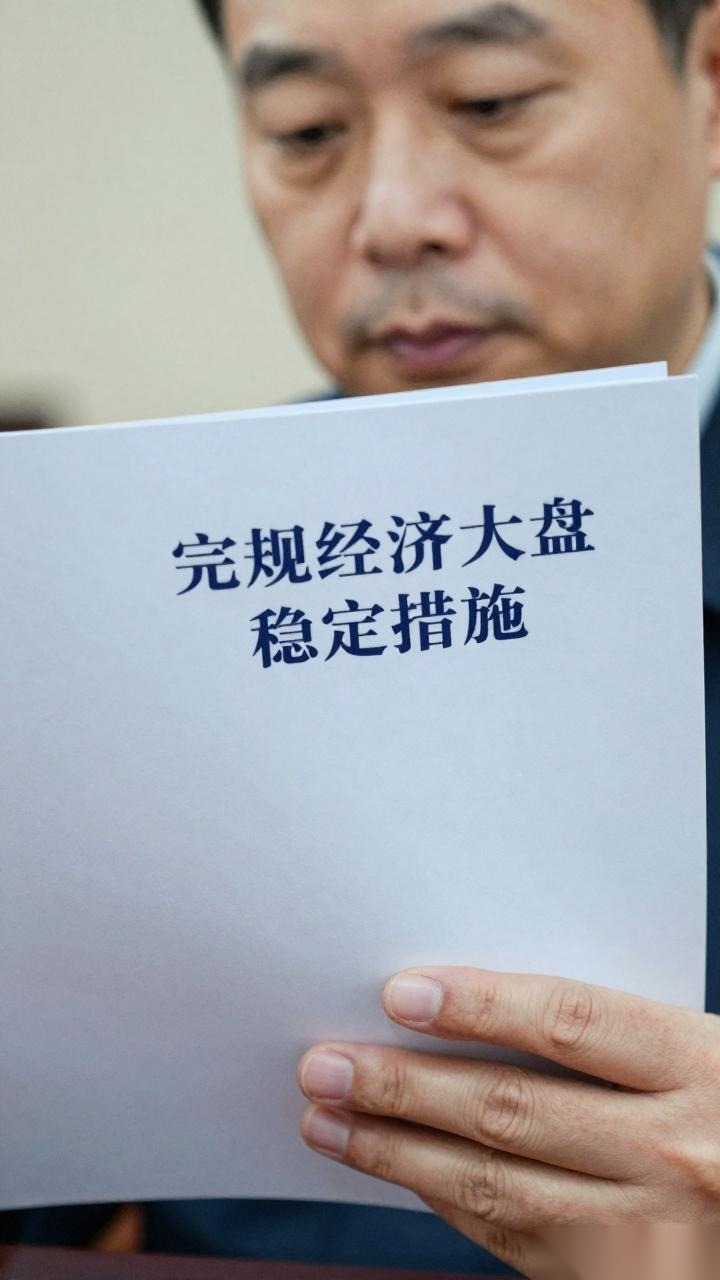 完规经济大盘
稳定措施